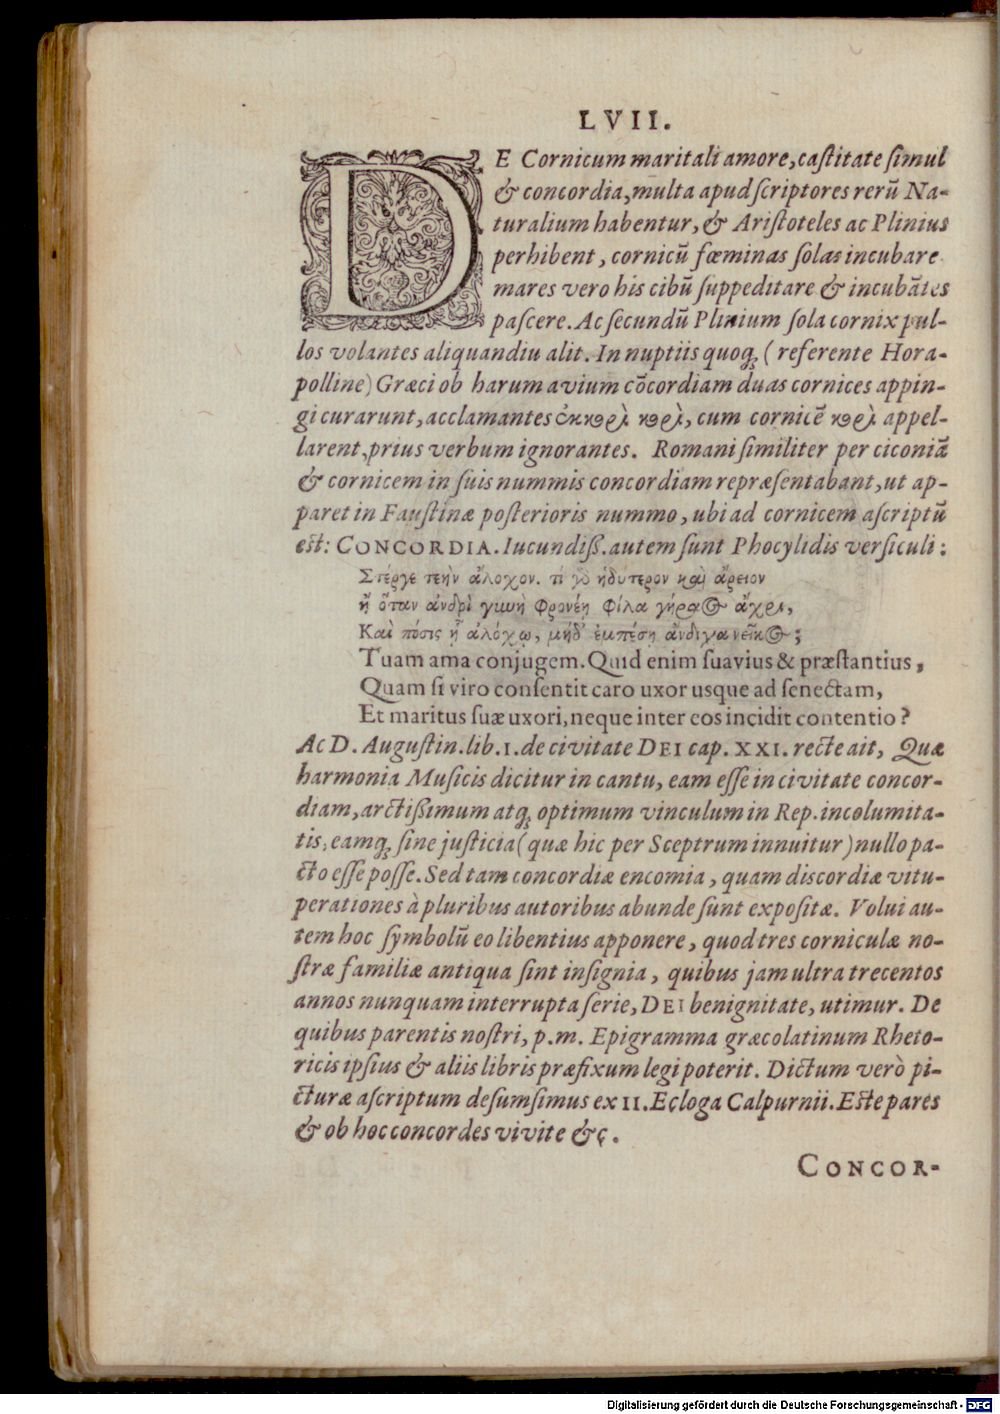 LVII.
DE Cornicum maritali amore, castitate simul
& concordia, multa apud scriptores rerū Na-
turalium habentur, & Aristoteles ac Plinius
perhibent, cornicū fœminas solas incubare
mares vero his cibū suppeditare & incubātes
pascere. Ac secundū Plinium sola cornix pul-
los volantes aliquandiu alit. In nuptiis quoq; ( referente Hora-
polline) Græci ob harum avium cōcordiam duas cornices appin-
gi curarunt, acclamantes ἐκκορὶ κορὶ, cum cornicē κορὶ appel-
larent, prius verbum ignorantes. Romani similiter per ciconiā
& cornicem in suis nummis concordiam repræsentabant, ut ap-
paret in Faustinæ posterioris nummo, ubi ad cornicem ascriptū
est: CONCORDIA. Iucundiß. autem sunt Phocylidis versiculi:
Στέργε τεὴν ἄλοχον. τί γὸ ἡδυτερον καὶ ἄρειον
ἢ ὅταν ἀνδρὶ γυνὴ φρονέῃ φίλα γήραος ἄχρι,
Καὶ πόσις ᾗ ἀλόχῳ, μήδ' ἐμπέσῃ ἄνδιχα νεῖκος;
Tuam ama conjugem. Quid enim suavius & præstantius,
Quam si viro consentit caro uxor usque ad senectam,
Et maritus suæ uxori, neque inter eos incidit contentio?
Ac D. Augustin. lib. 1. de civitate DEI cap. XXI. recte ait, Quæ
harmonia Musicis dicitur in cantu, eam esse in civitate concor-
diam, arctißimum atq; optimum vinculum in Rep. incolumita-
tis, eamq; sine justicia ( quæ hic per Sceptrum innuitur ) nullo pa-
cto esse posse. Sed tam concordiæ encomia, quam discordiæ vitu-
perationes à pluribus autoribus abunde sunt expositæ. Volui au-
tem hoc symbolū eo libentius apponere, quod tres corniculæ no-
stræ familiæ antiqua sint insignia, quibus jam ultra trecentos
annos nunquam interrupta serie, DEI benignitate, utimur. De
quibus parentis nostri, p.m. Epigramma græcolatinum Rheto-
ricis ipsius & aliis libris præfixum legi poterit. Dictum verò pi-
cturæ ascriptum desumsimus ex II. Ecloga Calpurnii. Este pares
& ob hoc concordes vivite &ç.
CONCOR-
Digitalisierung gefördert durch die Deutsche Forschungsgemeinschaft - DFG